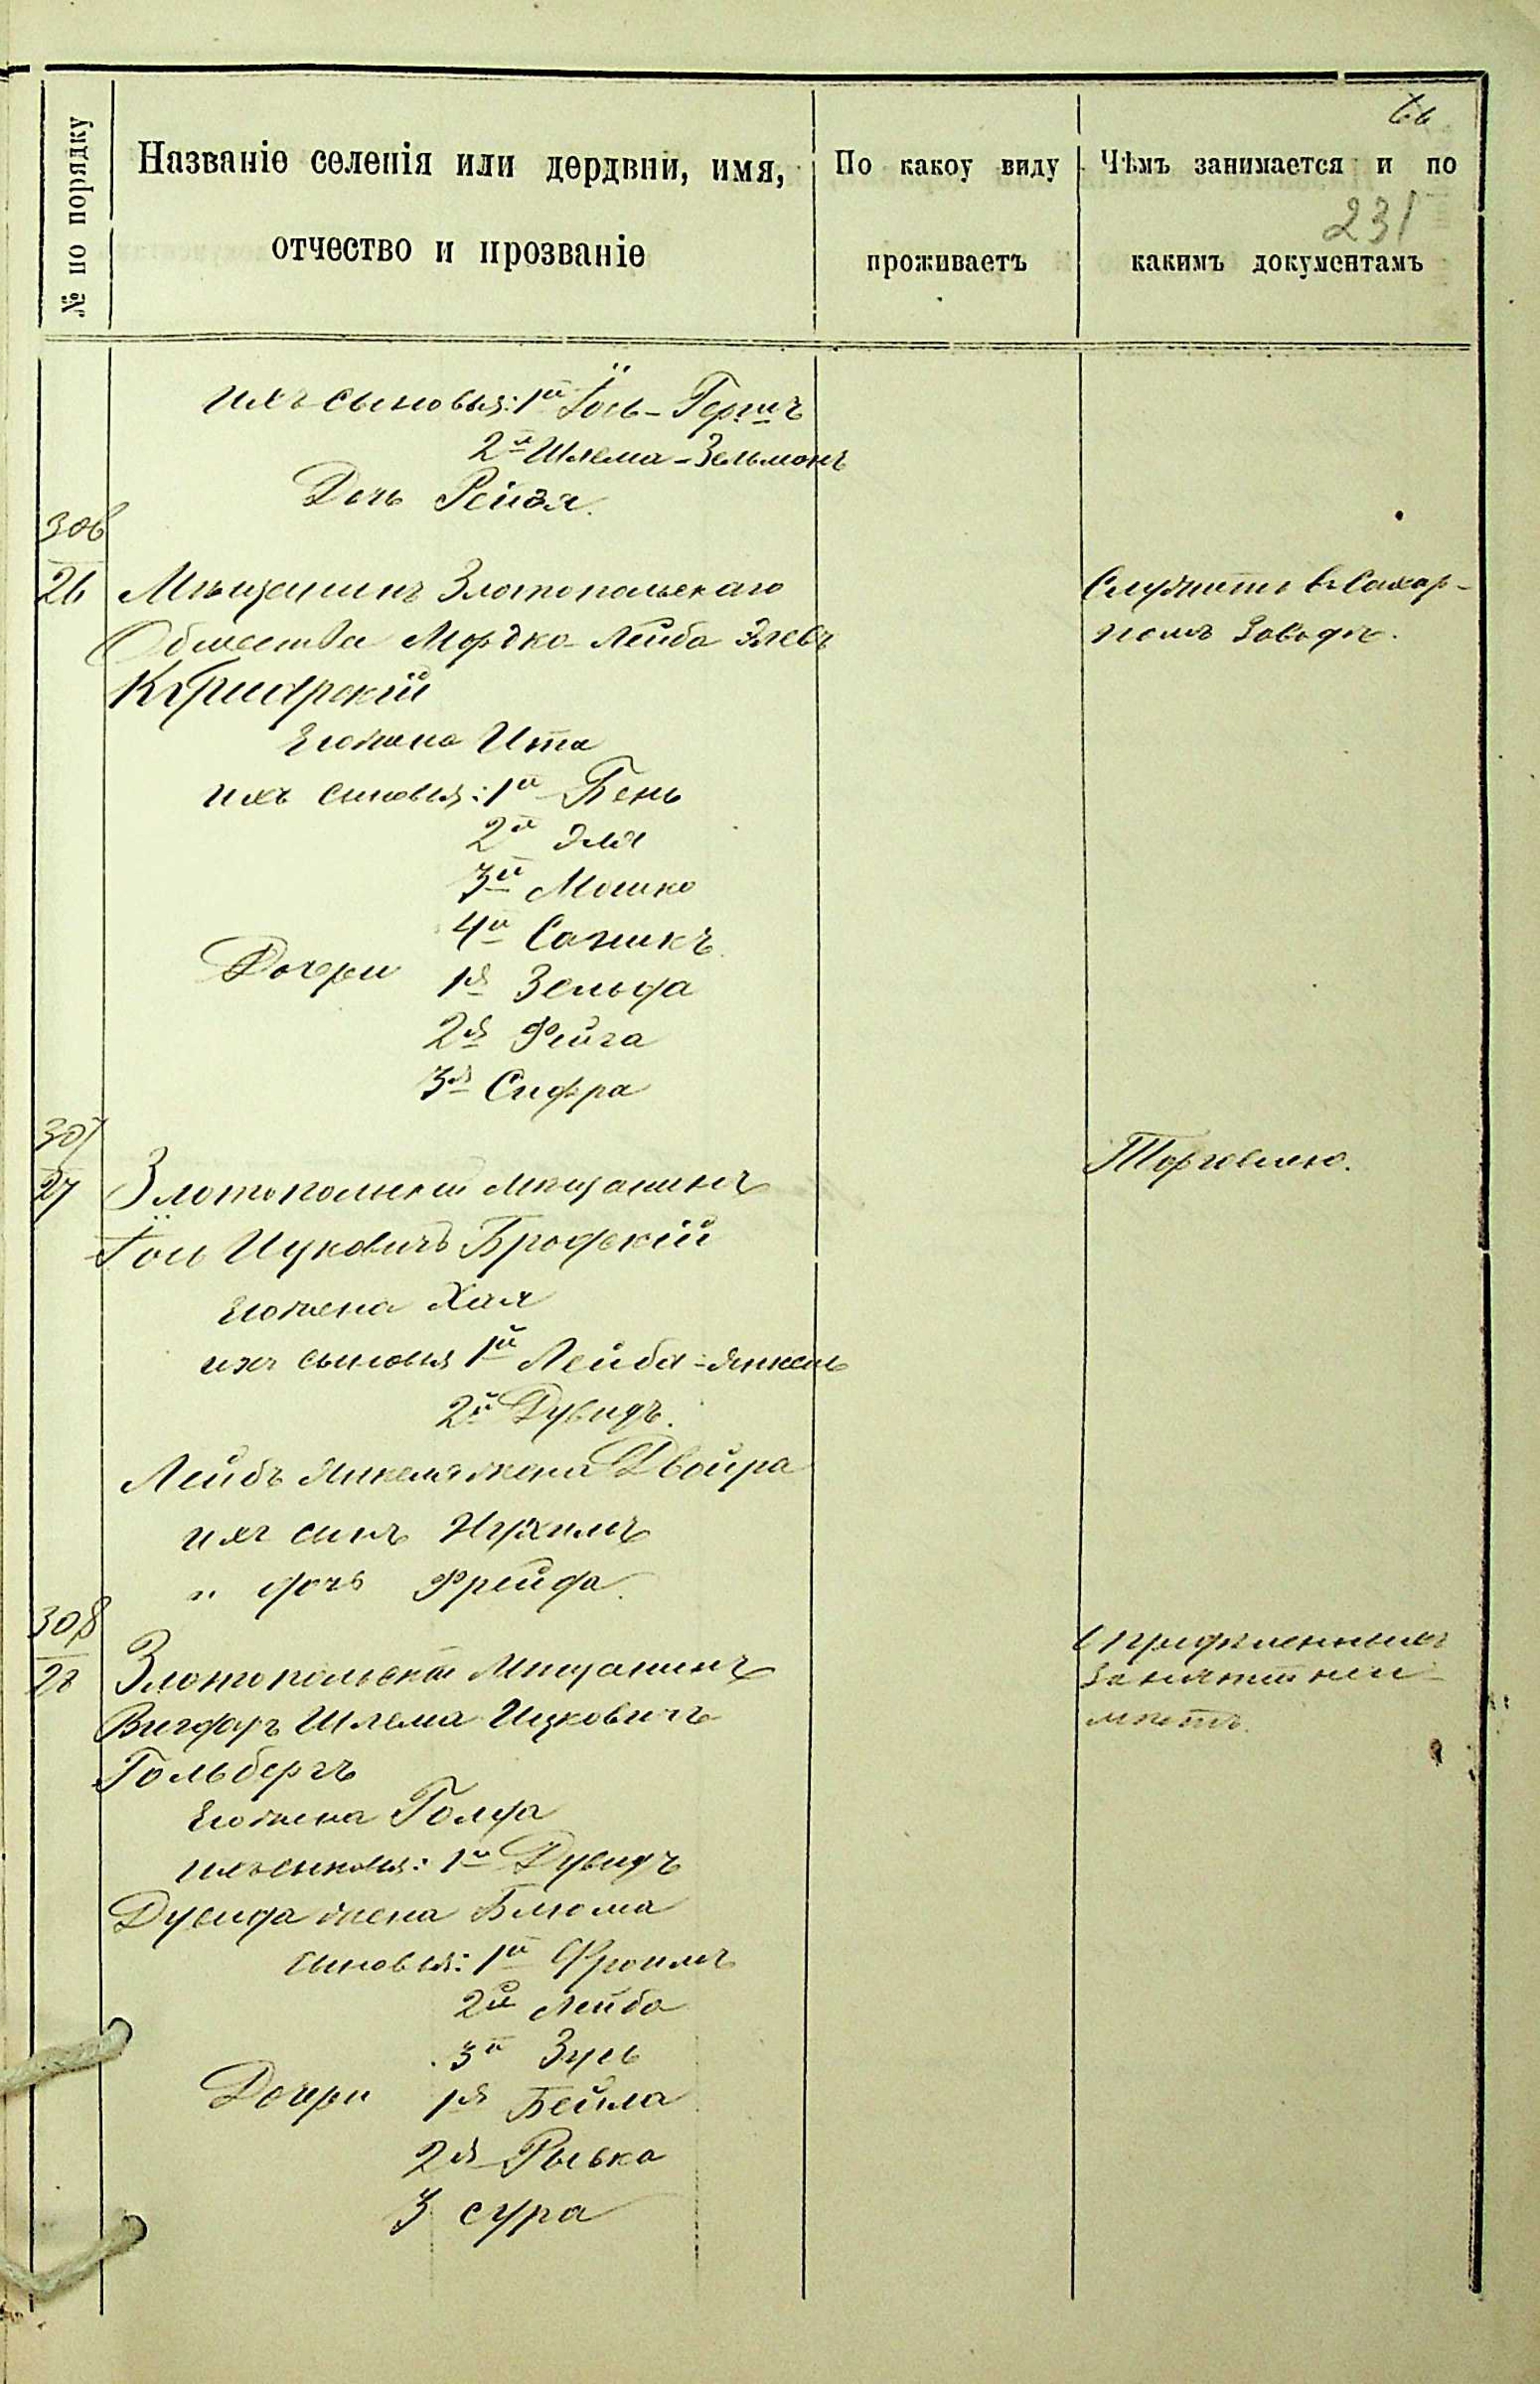 66
231
№ по порядку
Названіе селенія или дердвни, имя,
отчество и прозваніе
По какоу виду
проживаетъ
Чѣмъ занимается и по
какимъ документамъ
ихъ сыновья: 1й Іось-Гершъ
2й Шлема-Зельманъ
Дочь Рейзя.
306
26
Мѣщанинъ Златопольскаго
Общества Мордко-Лейба Элевъ
его жена Ита
ихъ сыновья: 1й Бень
2й Эля
3й Мошко
4й
Дочери 1я Зельда
2я Фейга
3я Сифра
Служитъ въ Сахар-
номъ Заводѣ.
307
27
Златопольскій Мѣщанинъ
Іось Ицковичъ Бродскій
его жена Хая
ихъ сыновья 1й Лейба-Янкель
2й Дувидъ.
Лейбъ Янкеля жена Двойра
ихъ сынъ Нухимъ
" дочь Фрейда.
Торговлею.
308
28
Златопольскій Мѣщанинъ
Вигдоръ Шлема Ицковичъ
Гольбергъ
его жена Голда
ихъ сыновья: 1й Дувидъ
Дувида жена Блюма
сыновья: 1й Фроимъ
2й Лейба
3й Зусь
Дочери 1я Бейла
2я Рывка
3 сура
Опредѣленныхъ
Занятій неи-
мѣетъ.